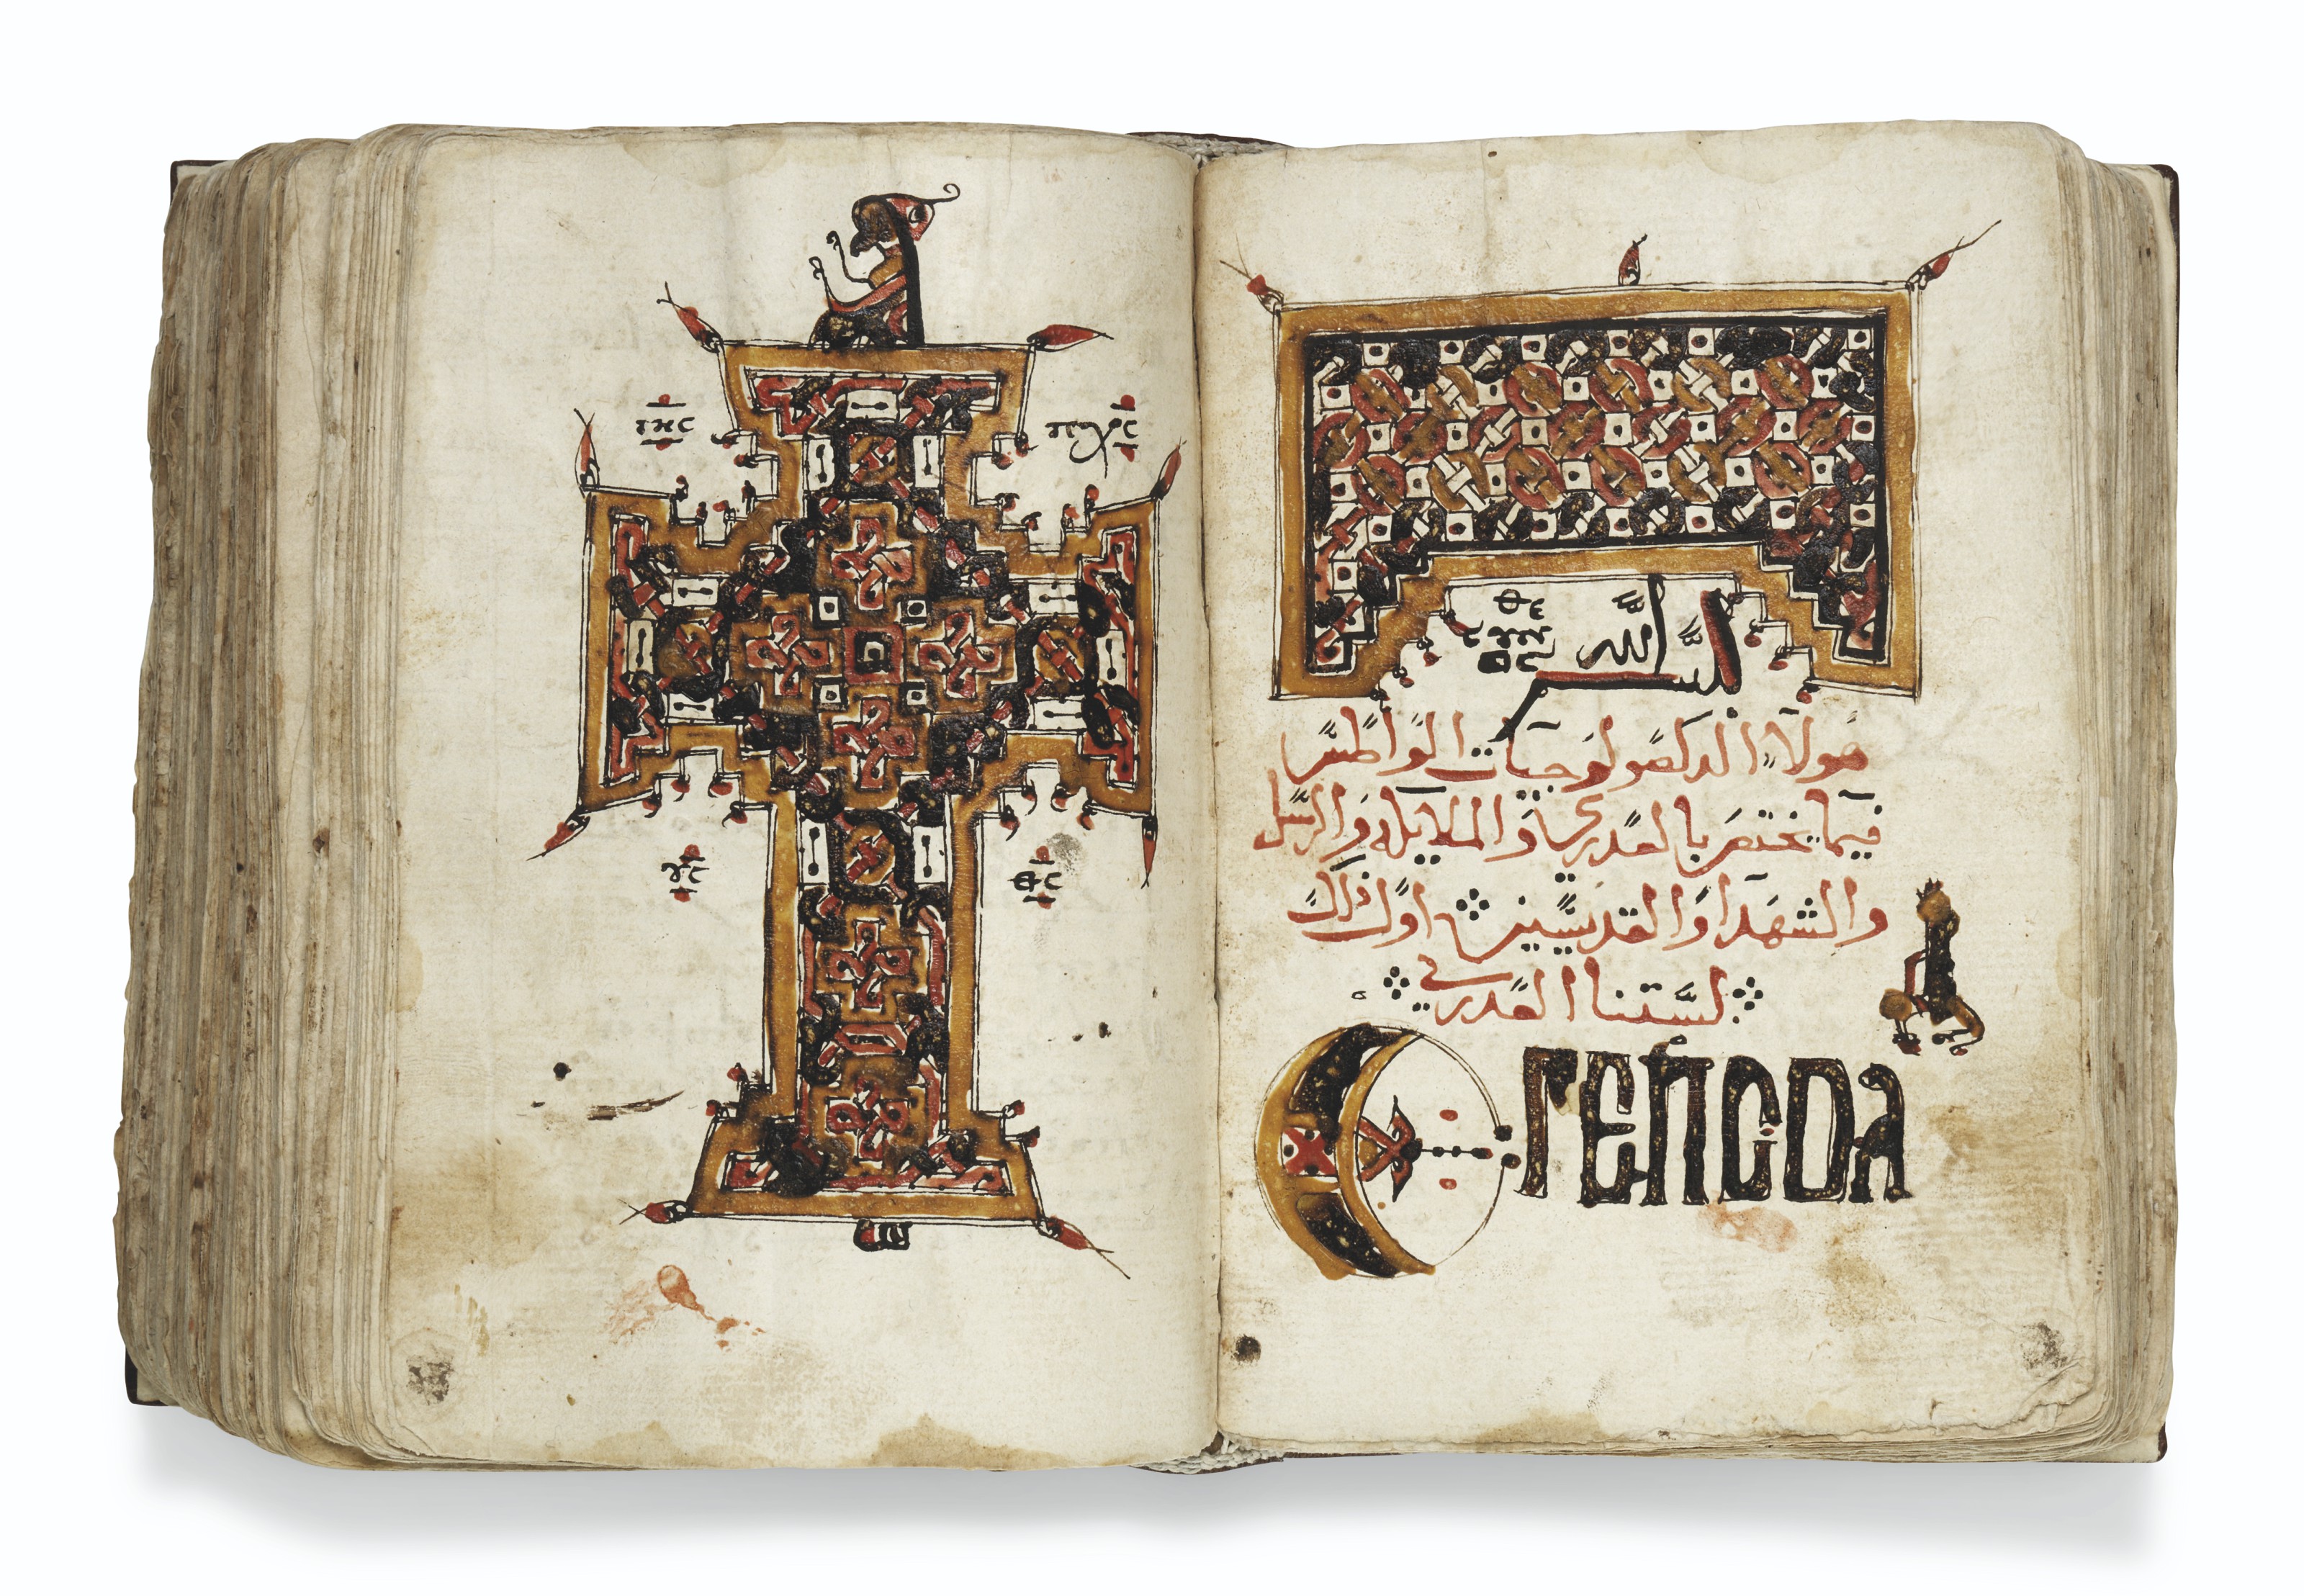 ⲓ̅ⲏ̅ⲥ̅ ⲡ̅ⲭ̅ⲥ̅
ⲩ̅ⲥ̅ ⲑ̅ⲥ̅
بسم الله
هولاء الدكصولوجيات الواطس
فيما يختص بالعدرى والملايكه والرسل
والشهدا والقديسين اول ذلك
لستنا العدرى
ⲈⲢⲈⲠⲤⲞⲖ